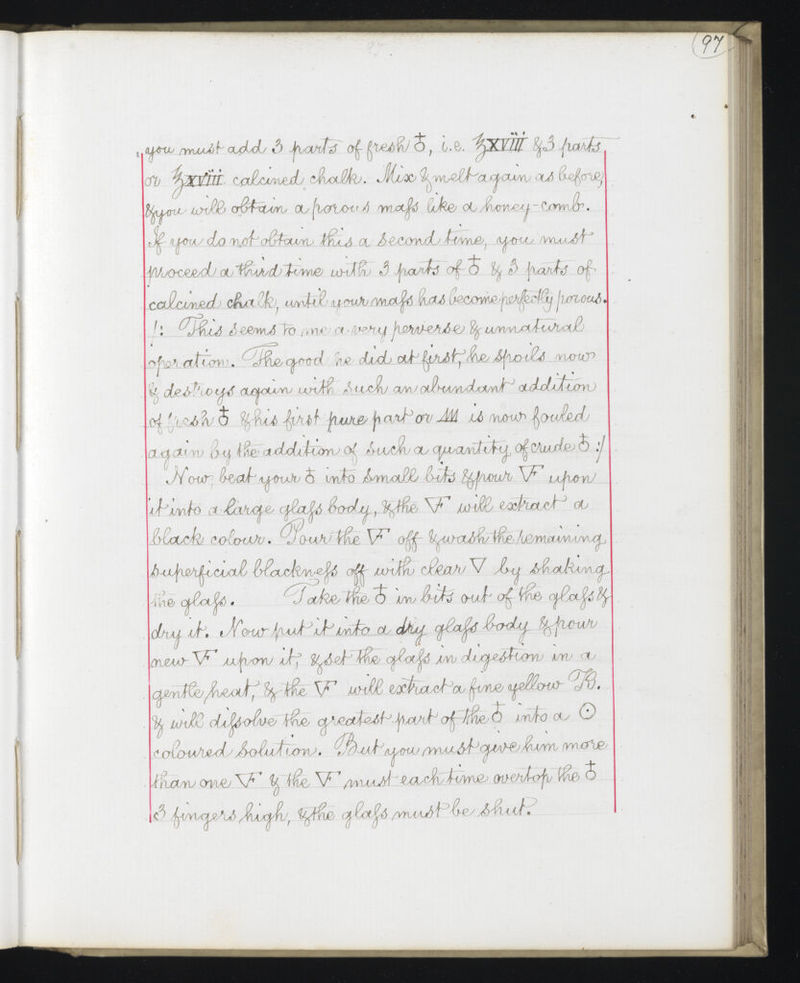 97
you must add 3 parts of fresh ♁, i.e. ℥XVIII & 3 parts
or ℥XVIII calcined chalk. Mix & melt again as before,
& you will obtain a porous maſs like a honey-comb.
If you do not obtain this a second time, you must
proceed a third time with 3 parts of ♁ & 3 parts of
calcined chalk, until your maſs has become perfectly porous.
/: This seems to me a very perverse & unnatural
operation. The good he did at first, he spoils now
& destroys again with such an abundant addition
of fresh ♁ & his first pure part or is now fouled
again by the addition of such a quantity of crude ♁ :/
Now, beat your ♁ into small bits & pour 🜊 upon
it into a large glaſs body, & the 🜊 will extract a
black colour. Pour the 🜊 off & wash the remaining
superficial blackneſs off with clear ▽ by shaking
the glaſs. Take the ♁ in bits out of the glaſs &
dry it. Now put it into a dry glaſs body & pour
new 🜊 upon it, & set the glaſs in digestion in a
gentle heat, & the 🜊 will extract a fine yellow
& will diſsolve the greatest part of the ♁ into a ☉
coloured solution. But you must give him more
than one 🜊 & the 🜊 must each time overtop the ♁
3 fingers high, & the glaſs must be shut.